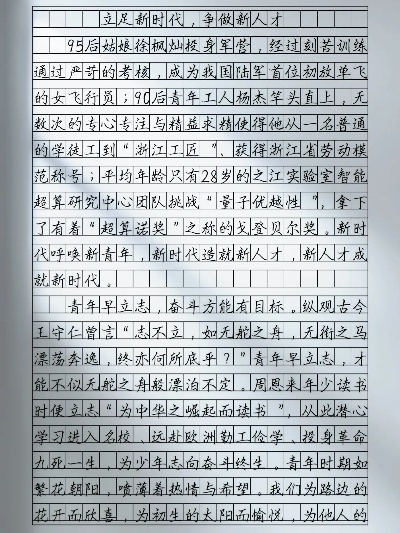 立足新时代，争做新人才
95后姑娘徐枫灿投身军营，经过刻苦训练
通过严苛的考核，成为我国陆军首位初放单飞
的女飞行员；90后青年工人杨杰竿头直上，无
数次的专心专注与精益求精使得他从一名普通
的学徒工到“浙江工匠”、获得浙江省劳动模
范称号；平均年龄只有28岁的之江实验室智能
超算研究中心团队挑战“量子优越性”，拿下
了有着“超算诺奖”之称的戈登贝尔奖。新时
代呼唤新青年，新时代造就新人才，新人才成
就新时代。
青年早立志，奋斗方能有目标。纵观古今
王守仁曾言“志不立，如无舵之舟，无衔之马
漂荡奔逸，终亦何所底乎？”青年早立志，才
能不似无舵之舟般漂泊不定。周恩来年少读书
时便立志“为中华之崛起而读书”，从此潜心
学习进入名校、远赴欧洲勤工俭学、投身革命
九死一生，为少年志向奋斗终生。青年时期如
繁花朝阳，喷薄着热情与希望。我们为路边的
花开而欣喜，为初生的太阳而愉悦，为他人的